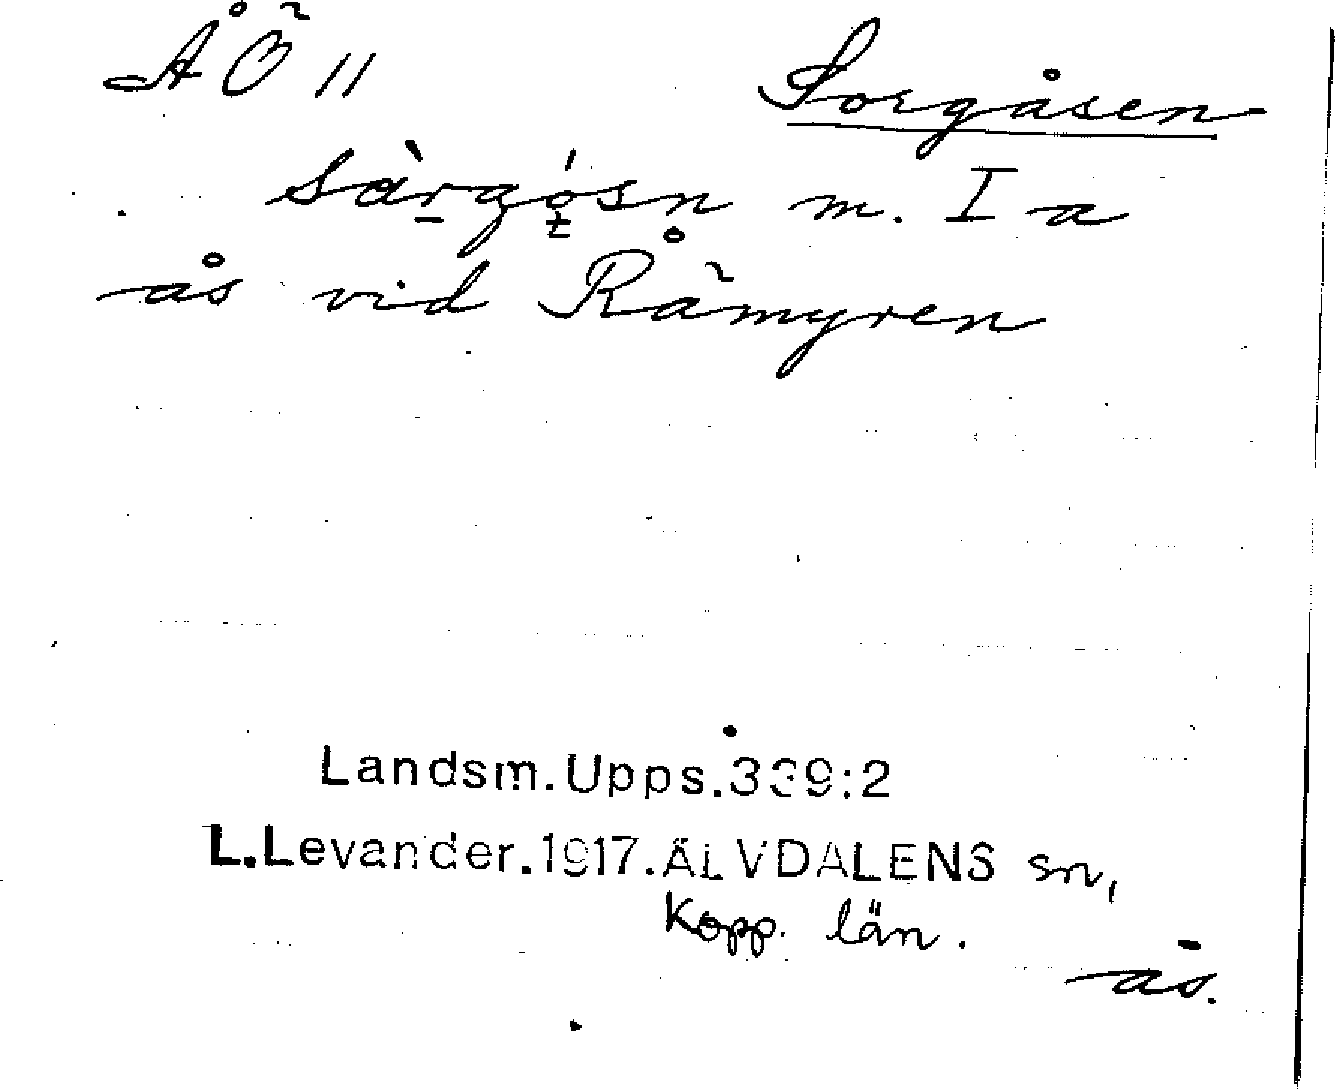 ÅÖ 11 Sorgåsen
sàrgǫ́sn m. I a
ås vid Råmyren
Landsm. Upps. 339:2
L. Levander. 1917. ÄLVDALENS sn,
Kopp. län.
ås.